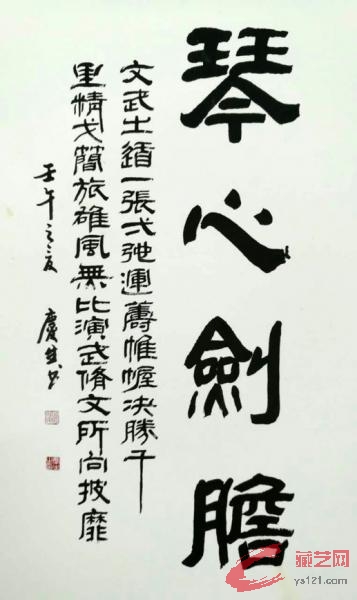 琴心劍膽
文武士道一張弌弛運籌帷幄決勝千
里精戈簡旅雄風無比演武脩文所向披靡
壬午之夏 慶
藏艺网
ys121.com